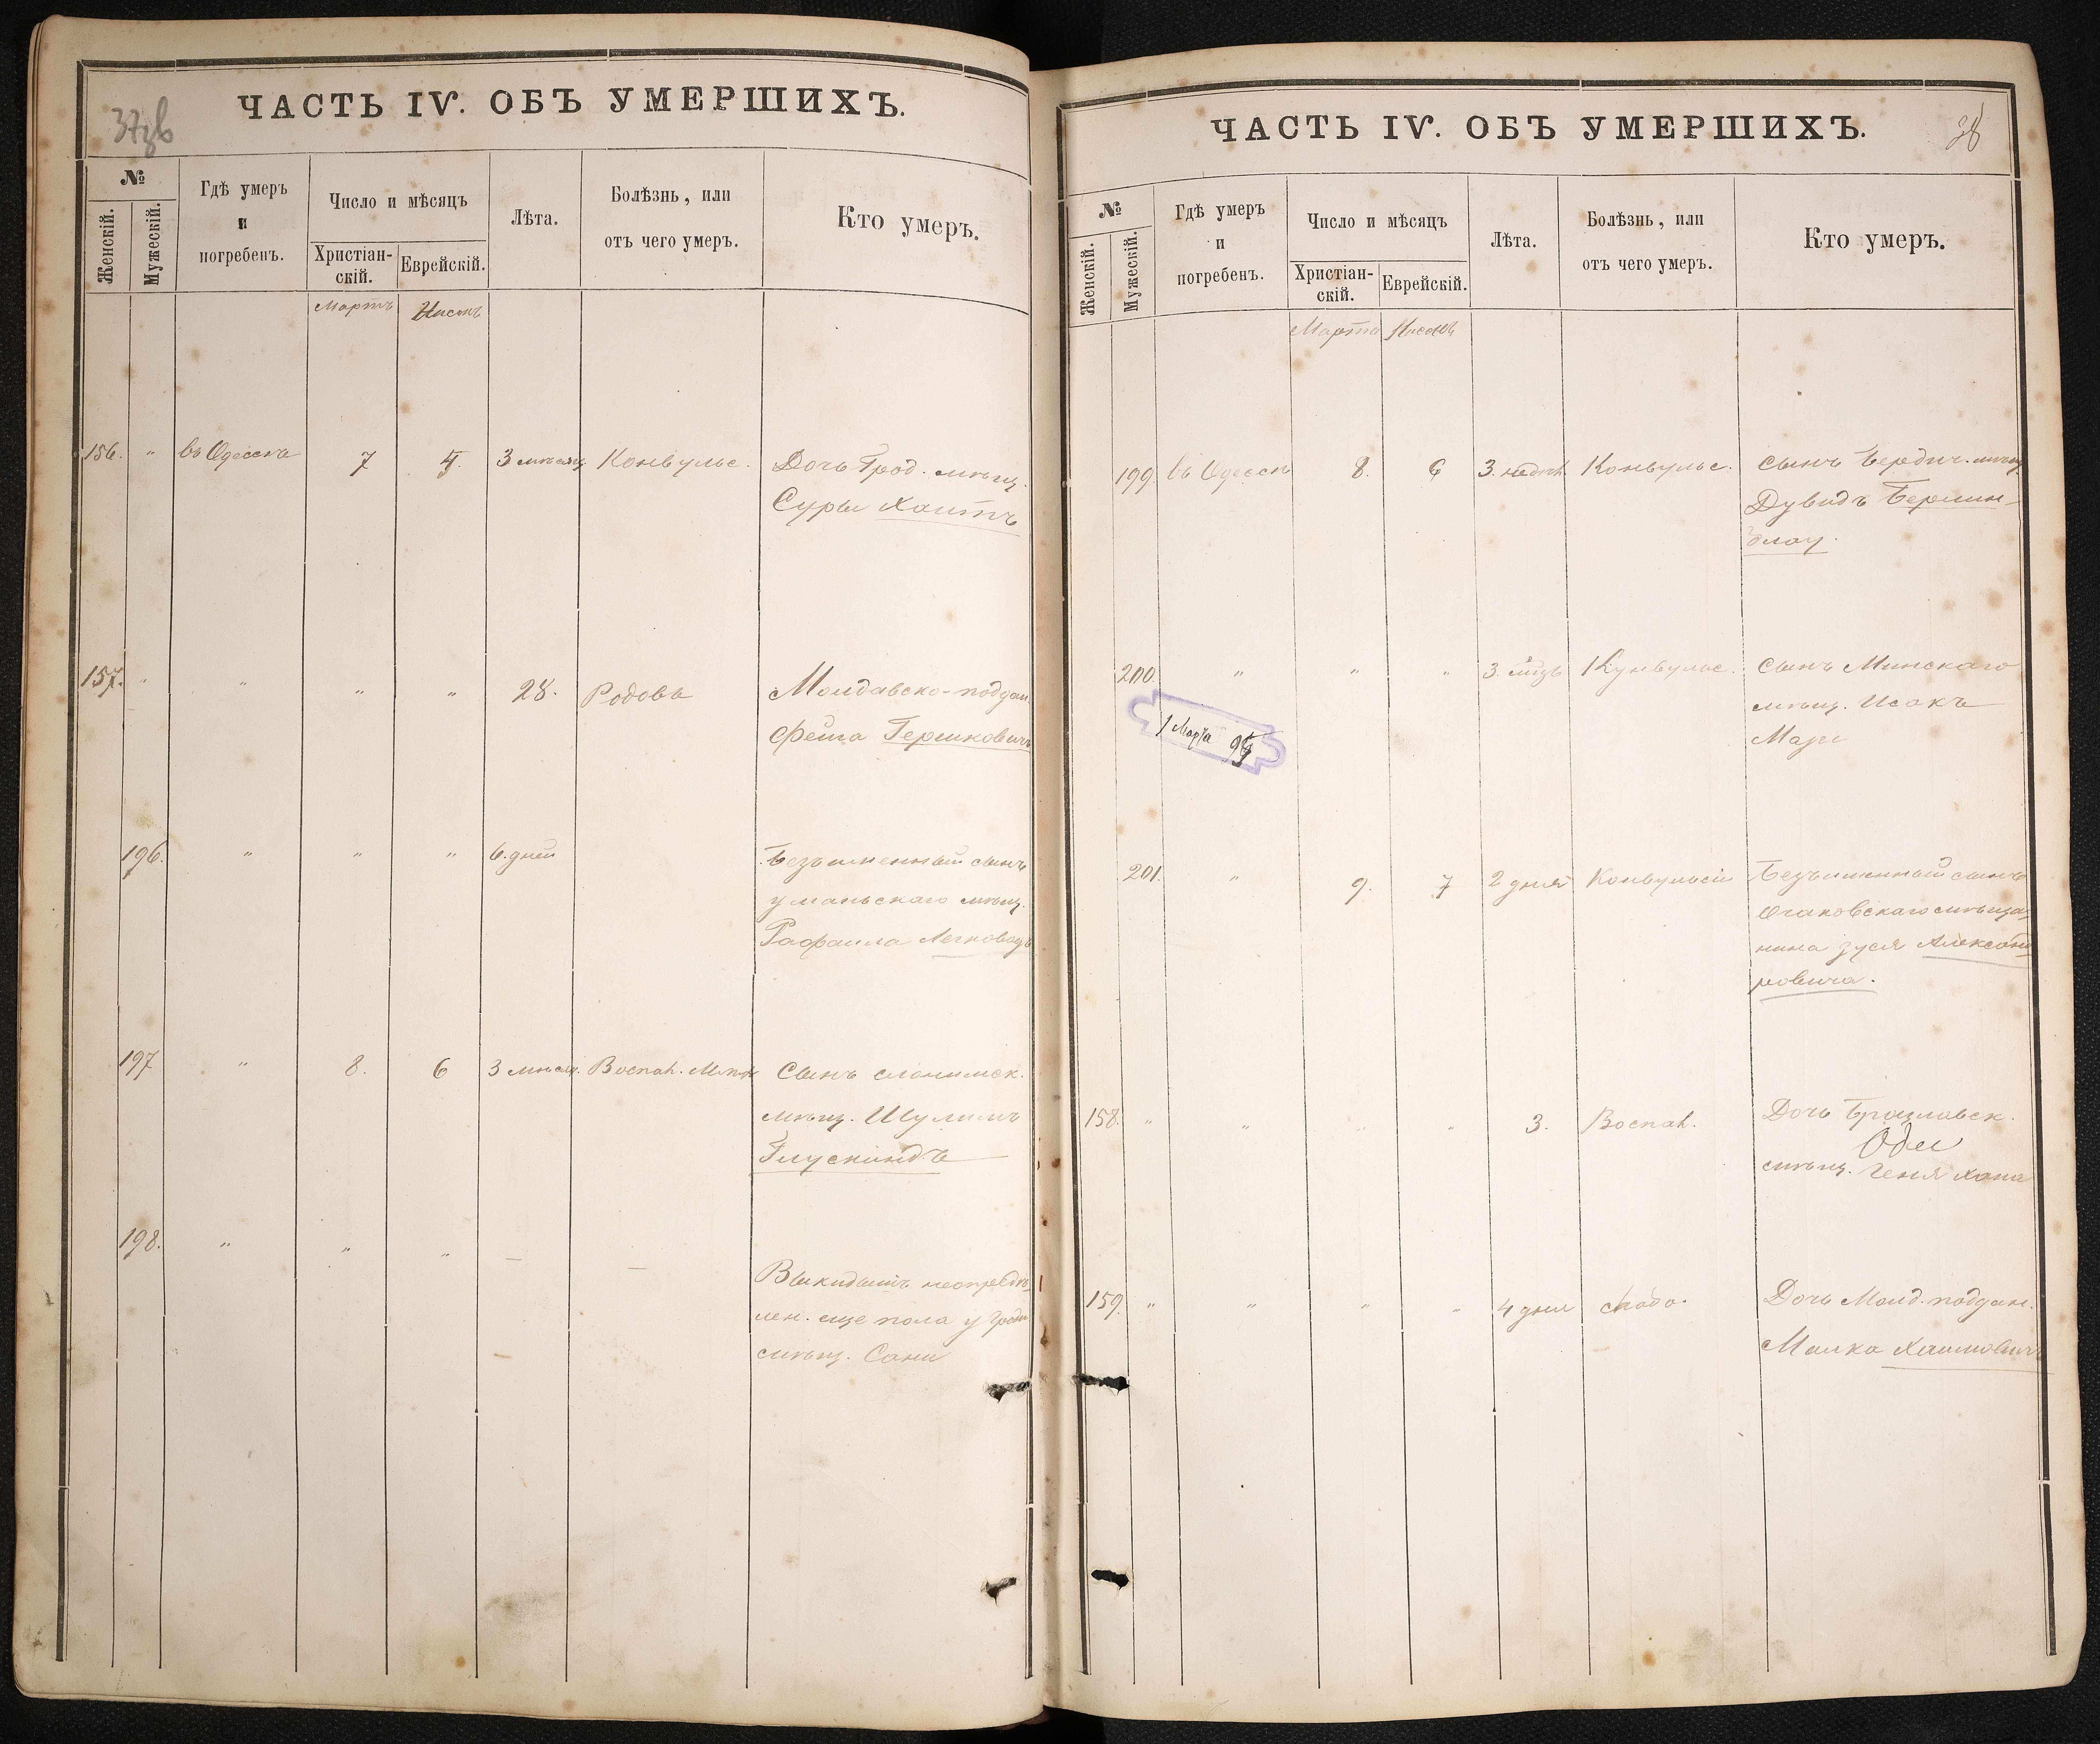 37зв
ЧАСТЬ IV. ОБЪ УМЕРШИХЪ.
№
Женскій.
Мужескій.
Гдѣ умеръ
и
погребенъ.
Число и мѣсяцъ
Христіан-
скій.
Еврейскій.
Лѣта.
Болѣзнь, или
отъ чего умеръ.
Кто умеръ.
Мартъ Нисонъ
156. " въ Одессѣ 7 5. 3 мѣсяц Конвульс. Дочь Грод. мѣщ.
Суры Хаитъ
157. " " " " 28. Родовъ Молдавско-поддан.
Фейга Гершковичъ
196. " " " 6. дней Безъименный сынъ
уманьскаго мѣщ.
Рафаила
197 " 8. 6 3 мѣсяц. Воспал. Сынъ слонимск.
мѣщ. Шулимъ
Глускиндъ
198. " " " — — Выкидышъ неопредѣ-
лен. еще пола у
мѣщ. Сани
ЧАСТЬ IV. ОБЪ УМЕРШИХЪ.
38
№
Женскій.
Мужескій.
Гдѣ умеръ
и
погребенъ.
Число и мѣсяцъ
Христіан-
скій.
Еврейскій.
Лѣта.
Болѣзнь, или
отъ чего умеръ.
Кто умеръ.
Марта Нисонъ
199. въ Одессѣ 8. 6 3. недѣл Конвульс. Сынъ Бердич. мѣщ.
Дувидъ Берлин-
блау.
200. " " " 3. Кунвульс. Сынъ Минскаго
мѣщ. Исакъ
1 Марта
201. " 9. 7 2 дня Конвульсіи Безъименный сынъ
Очаковскаго мѣща-
нина Зуся Александ-
ровича.
158. " " " " 3. Воспал. Дочь Брацлавск.
мѣщ. Геня Хана
159. " " " " 4 дня слабо. Дочь Молд. поддан.
Малка Хаимовичъ